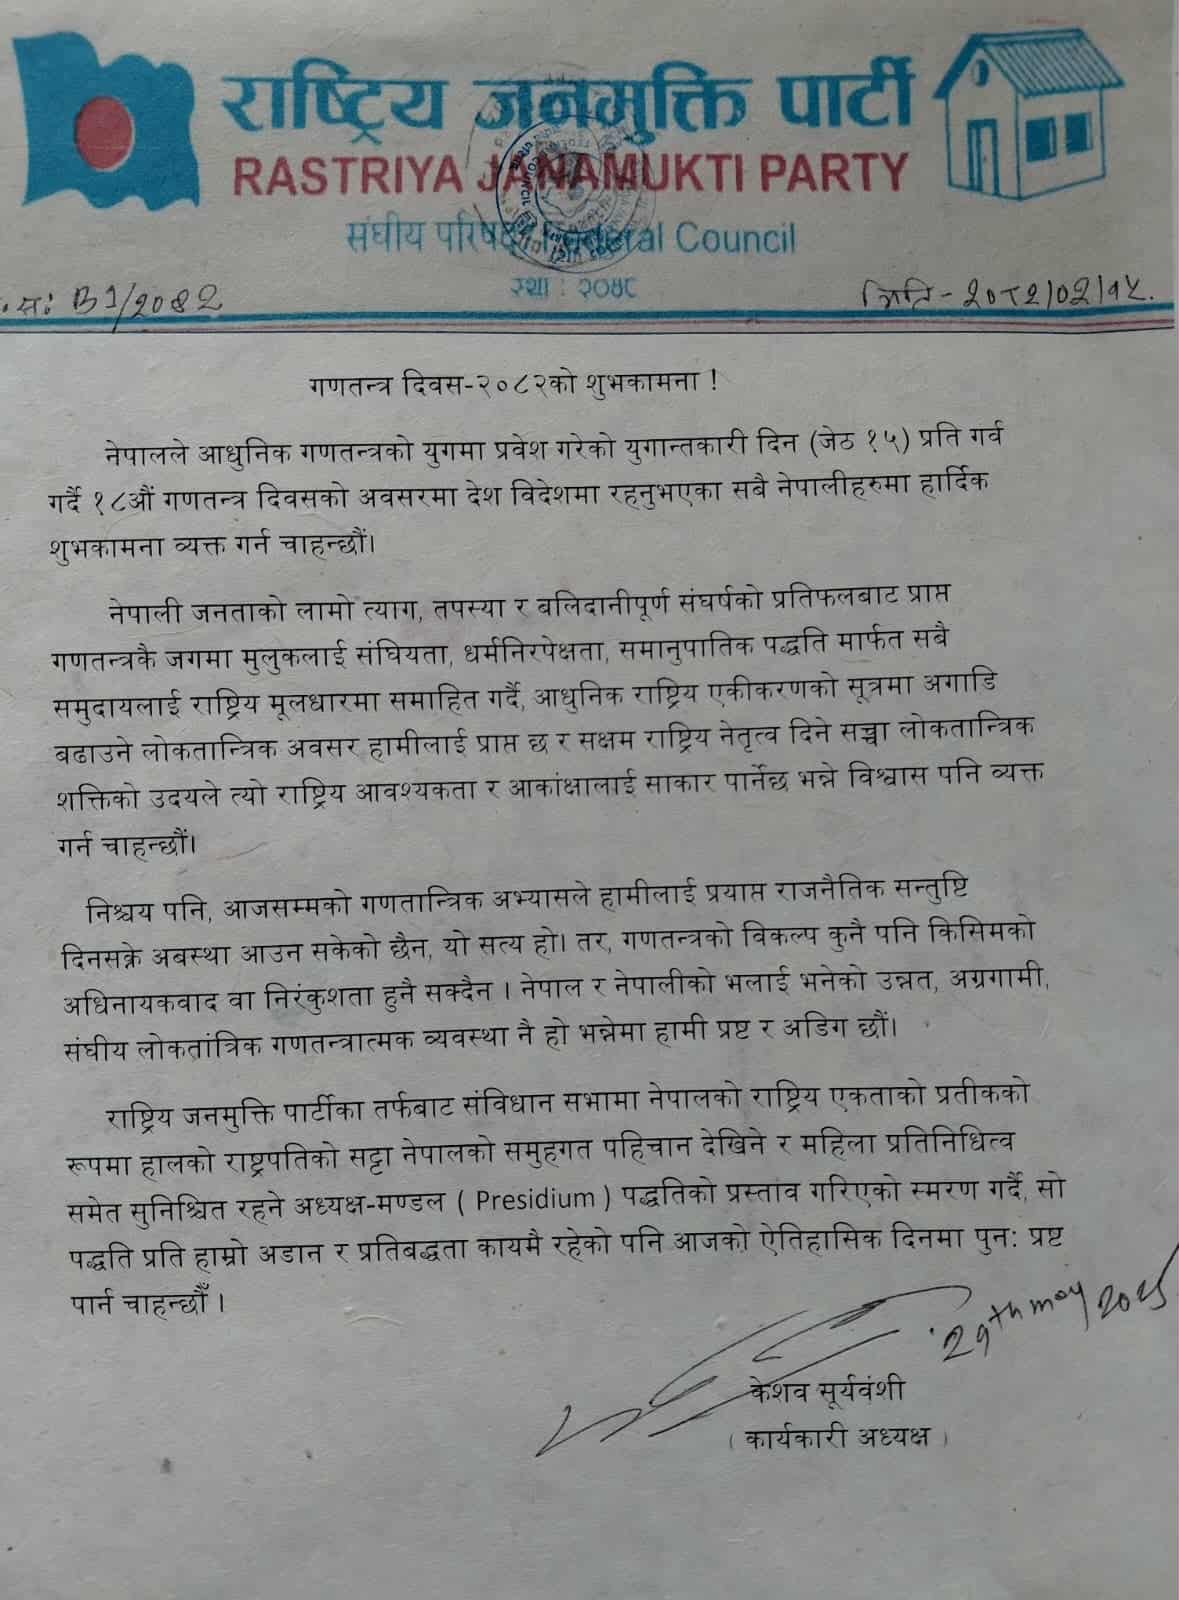 राष्ट्रिय जनमुक्ति पार्टी
RASTRIYA JANAMUKTI PARTY
संघीय परिषद Federal Council
स्था : २०४८
. सं: B1/2082
मिति - २०८२/०२/१५.
गणतन्त्र दिवस-२०८२को शुभकामना !
नेपालले आधुनिक गणतन्त्रको युगमा प्रवेश गरेको युगान्तकारी दिन (जेठ १५) प्रति गर्व
गर्दै १८औं गणतन्त्र दिवसको अवसरमा देश विदेशमा रहनुभएका सबै नेपालीहरुमा हार्दिक
शुभकामना व्यक्त गर्न चाहन्छौं।
नेपाली जनताको लामो त्याग, तपस्या र बलिदानीपूर्ण संघर्षको प्रतिफलबाट प्राप्त
गणतन्त्रकै जगमा मुलुकलाई संघियता, धर्मनिरपेक्षता, समानुपातिक पद्धति मार्फत सबै
समुदायलाई राष्ट्रिय मूलधारमा समाहित गर्दै, आधुनिक राष्ट्रिय एकीकरणको सूत्रमा अगाडि
बढाउने लोकतान्त्रिक अवसर हामीलाई प्राप्त छ र सक्षम राष्ट्रिय नेतृत्व दिने सच्चा लोकतान्त्रिक
शक्तिको उदयले त्यो राष्ट्रिय आवश्यकता र आकांक्षालाई साकार पार्नेछ भन्ने विश्वास पनि व्यक्त
गर्न चाहन्छौं।
निश्चय पनि, आजसम्मको गणतान्त्रिक अभ्यासले हामीलाई प्रयाप्त राजनैतिक सन्तुष्टि
दिनसक्ने अबस्था आउन सकेको छैन, यो सत्य हो। तर, गणतन्त्रको विकल्प कुनै पनि किसिमको
अधिनायकवाद वा निरंकुशता हुनै सक्दैन । नेपाल र नेपालीको भलाई भनेको उन्नत, अग्रगामी,
संघीय लोकतांत्रिक गणतन्त्रात्मक व्यवस्था नै हो भन्नेमा हामी प्रष्ट र अडिग छौं।
राष्ट्रिय जनमुक्ति पार्टीका तर्फबाट संविधान सभामा नेपालको राष्ट्रिय एकताको प्रतीकको
रूपमा हालको राष्ट्रपतिको सट्टा नेपालको समुहगत पहिचान देखिने र महिला प्रतिनिधित्व
समेत सुनिश्चित रहने अध्यक्ष-मण्डल ( Presidium ) पद्धतिको प्रस्ताव गरिएको स्मरण गर्दै, सो
पद्धति प्रति हाम्रो अडान र प्रतिबद्धता कायमै रहेको पनि आजको ऐतिहासिक दिनमा पुन: प्रष्ट
पार्न चाहन्छौँ ।
29th may 2025
केशव सूर्यवंशी
( कार्यकारी अध्यक्ष )